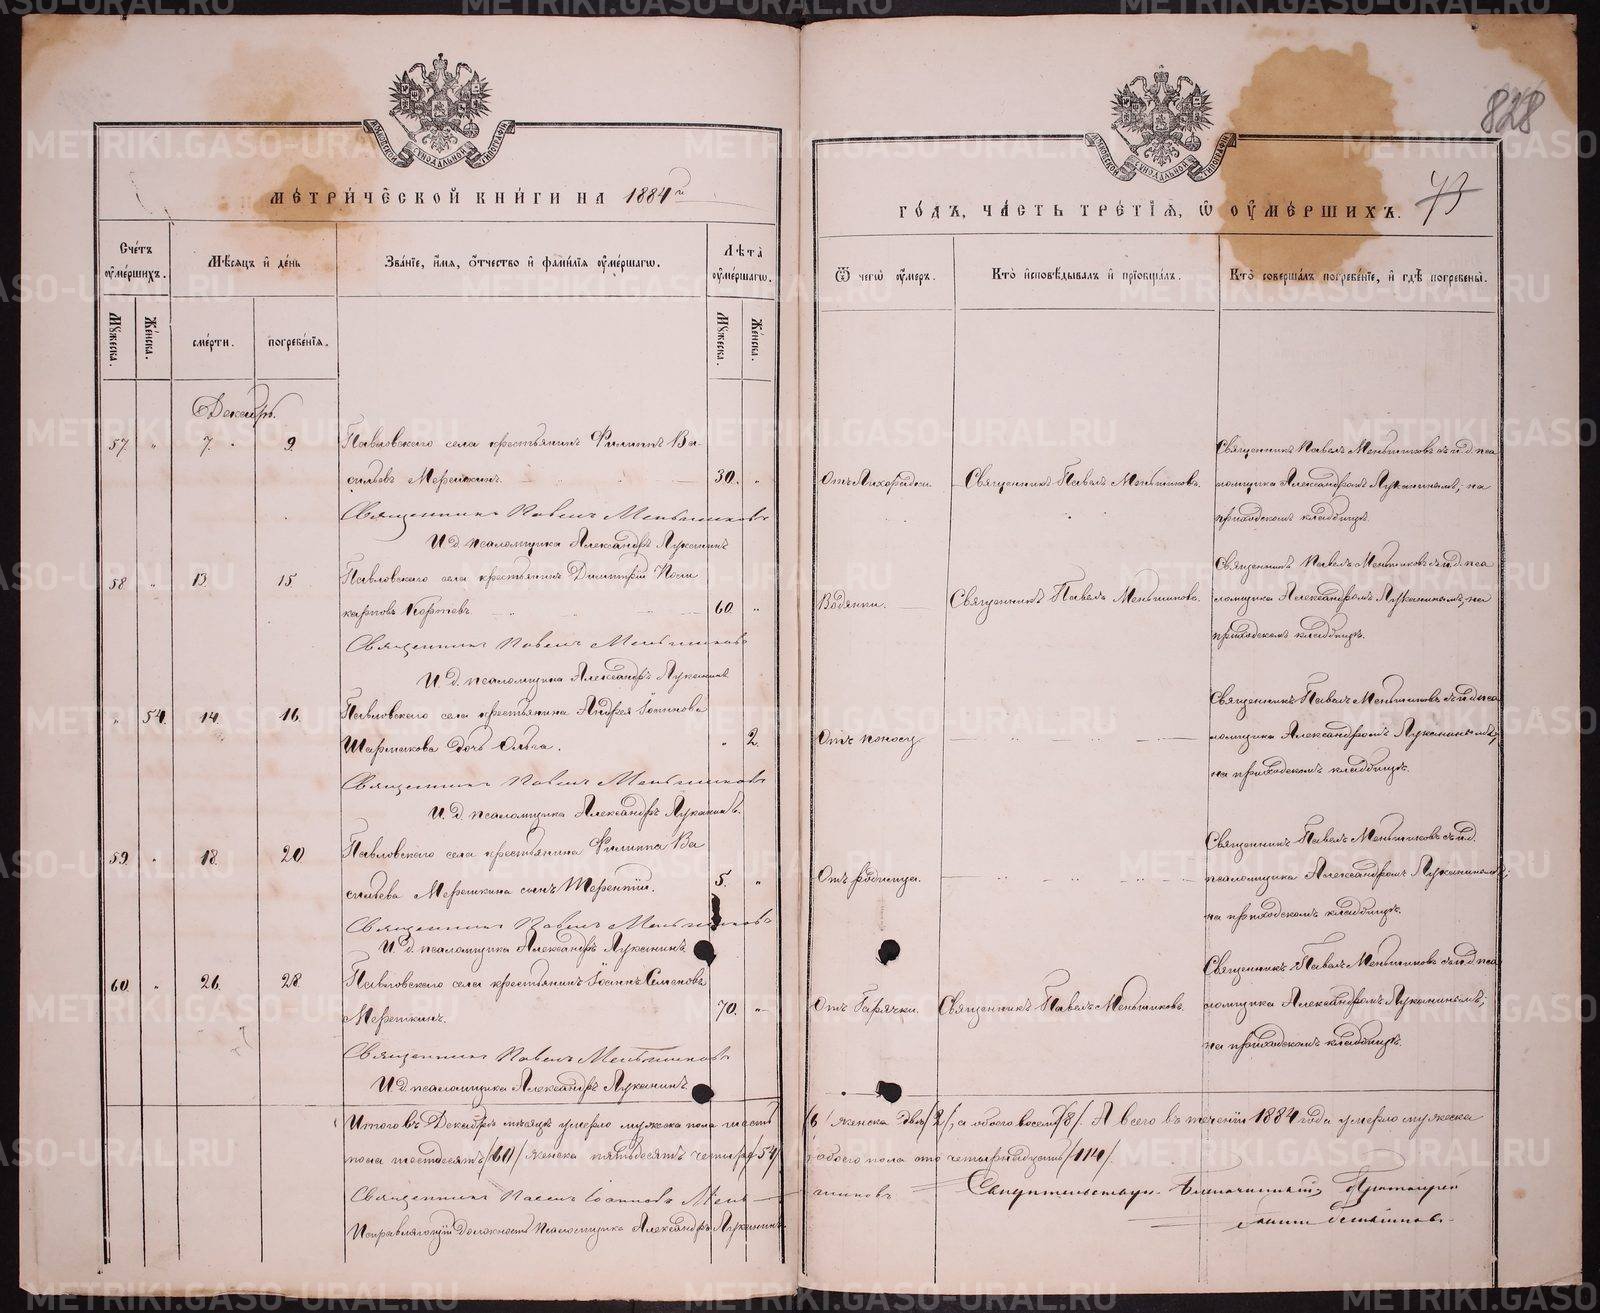 828
МОСКОВСКОЙ СѴНОДАЛЬНОЙ ТИПОГРАФІИ
МОСКОВСКОЙ СѴНОДАЛЬНОЙ ТИПОГРАФІИ
МЕТРИ́ЧЕСКОЙ КНИ́ГИ НА 1884 й
ГО́ДЪ, ЧА́СТЬ ТРЕ́ТІЯ, Ѡ ОУМЕ́РШИХЪ. 73
Сче́тъ оуме́ршихъ.
Мѣ́сяцъ и де́нь
Зва́ніе, и́мя, о́тчество и фами́лія оуме́ршагѡ.
Лѣта̀ оуме́ршагѡ.
Ѿ чегѡ̀ оу́меръ.
Кто̀ исповѣ́дывалъ и пріобща́лъ.
Кто̀ соверша́лъ погребе́ніе, и гдѣ̀ погребены̀.
Му́жеска.
Же́нска.
сме́рти.
погребе́нія.
Му́жеска.
Же́нска.
Декабрь.
57. " 7. 9. Павловскаго села крестьянинъ Филиппъ Ва-
сильевъ Мерешкинъ. 30. "
Священникъ Павелъ Меньшиковъ
И. д. псаломщика Александръ Луканинъ
Отъ Лихорадки. Священникъ Павелъ Меньшиковъ.
Священникъ Павелъ Меньшиковъ съ и. д. пса
ломщика Александромъ Луканинымъ, на
приходскомъ кладбищѣ.
58 " 13. 15. Павловскаго села крестьянинъ Димитрій Поли
карповъ Кортевъ. 60. "
Священникъ Павелъ Меньшиковъ
И. д. псаломщика Александръ Луканинъ
Водянки. Священникъ Павелъ Меньшиковъ.
Священникъ Павелъ Меньшиковъ съ и. д. пса
ломщика Александромъ Луканинымъ, на
приходскомъ кладбищѣ.
" 54. 14. 16. Павловскаго села крестьянина Андрея
Шарпакова дочь Ольга. " 2.
Священникъ Павелъ Меньшиковъ
И. д. псаломщика Александръ Луканинъ.
Отъ поносу
Священникъ Павелъ Меньшиковъ съ и. д. пса
ломщика Александромъ Луканинымъ,
на приходскомъ кладбищѣ.
59 " 18. 20 Павловскаго села крестьянина Филиппа Ва
сильева Мерешкина сынъ Терентій. 5. "
Священникъ Павелъ Меньшиковъ
И. д. псаломщика Александръ Луканинъ
Отъ родимца.
Священникъ Павелъ Меньшиковъ съ и. д.
псаломщика Александромъ Луканинымъ;
на приходскомъ кладбищѣ.
60. " 26. 28 Павловскаго села крестьянинъ Іоаннъ Семеновъ
Мерешкинъ. 70. "
Священникъ Павелъ Меньшиковъ
И. д. псаломщика Александръ Луканинъ
Отъ Горячки. Священникъ Павелъ Меньшиковъ.
Священникъ Павелъ Меньшиковъ съ и. д. пса
ломщика Александромъ Луканинымъ;
на приходскомъ кладбищѣ.
Итого въ Декабрѣ мѣсяцѣ умерло мужска пола шесть /6/ женска два /2/, а обоего восемь /8/. А всего въ теченіи 1884 года умерло мужеска
пола шестьдесятъ /60/ женска пятьдесятъ четыре /54/ обоего пола сто четырнадцать /114/.
Священникъ Павелъ Іоанновъ Мень-шиковъ
Исправляющій Должность Псаломщика Александръ Луканинъ.
Свидѣтельствовалъ Благочинный Протоіерей